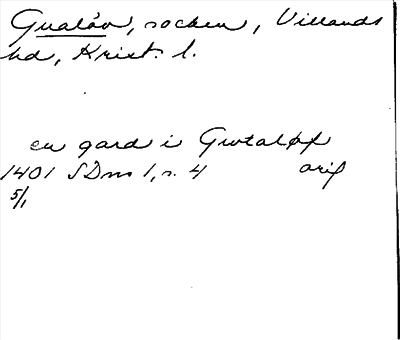 Gualöv, socken, Villands
hd, Krist. l.
en gard i Gwtaløf
1401 SDns 1, s. 4 orig
5/1